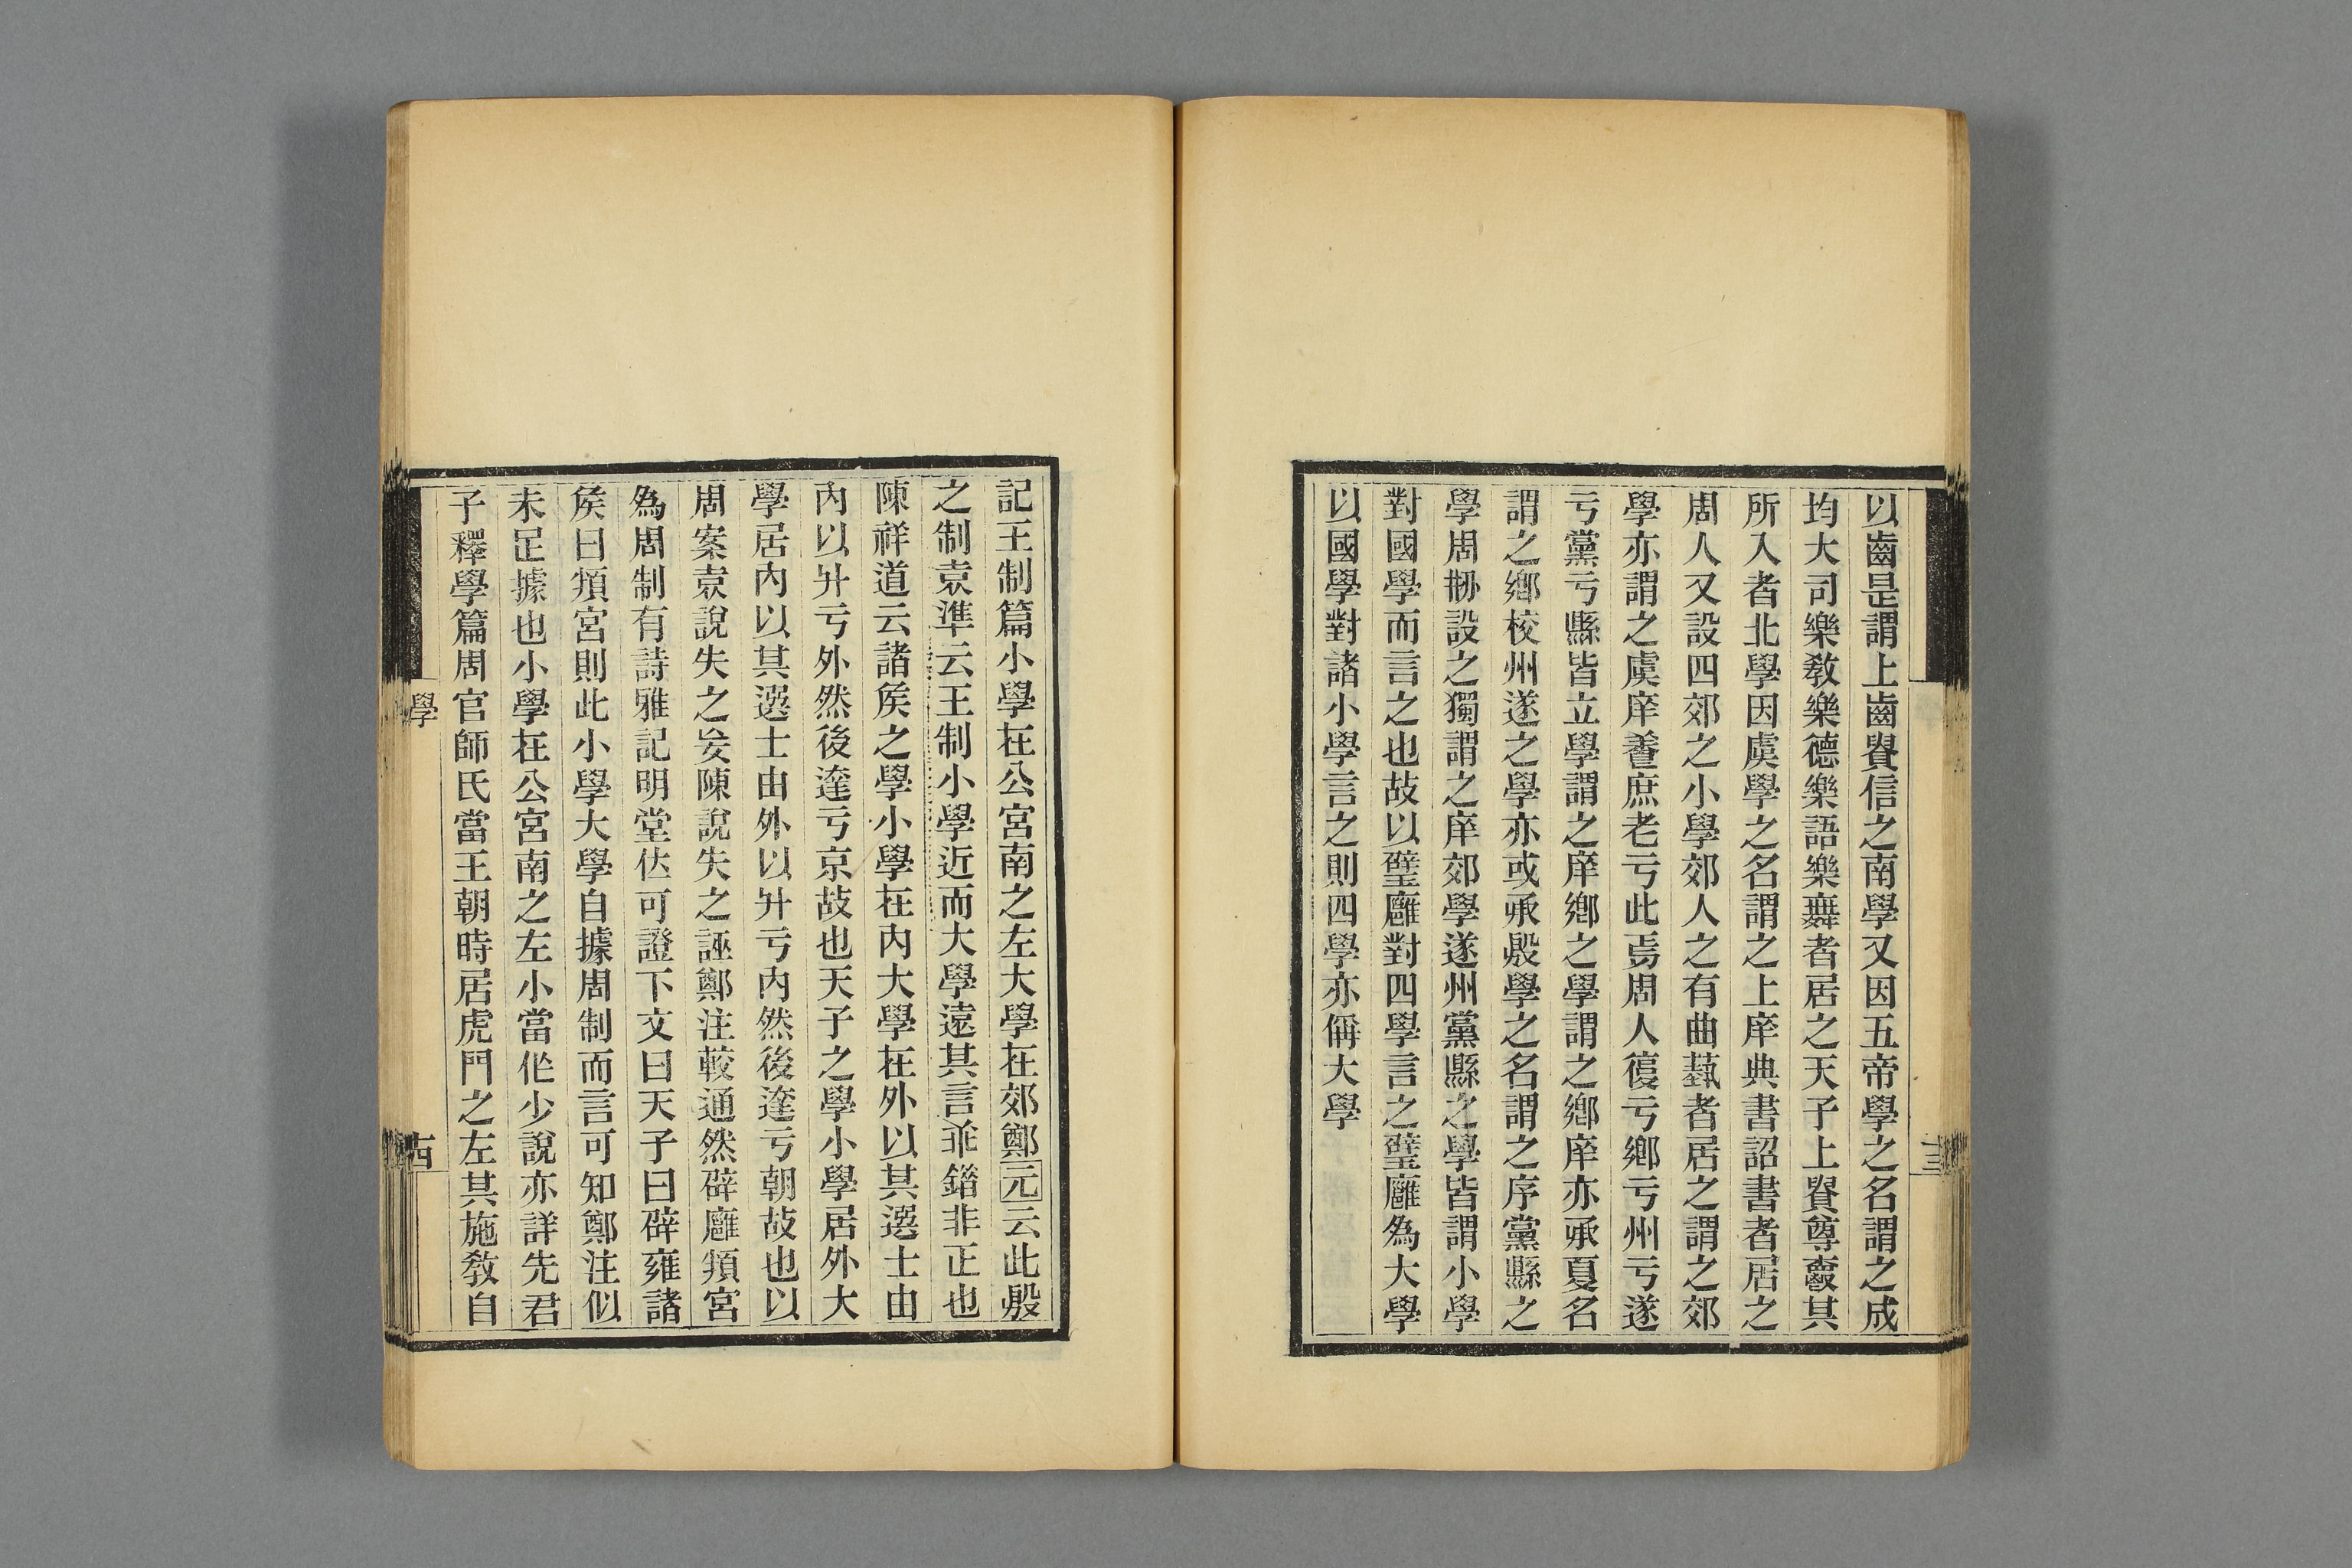 以齒是謂上齒䝿信之南學又因五帝學之名謂之成
均大司樂敎樂德樂語樂舞者居之天子上䝿尊�の其
所入者北學因虞學之名謂之上庠典書詔書者居之
周人又設四郊之小學郊人之有曲藝者居之謂之郊
學亦謂之虞庠養庶老亏此焉周人復亏鄉亏州亏遂
亏黨亏縣皆立學謂之庠鄉之學謂之鄉庠亦承夏名
謂之鄉校州遂之學亦或承殷學之名謂之序黨縣之
學周刱設之獨謂之庠郊學遂州黨縣之學皆謂小學
對國學而言之也故以璧廱對四學言之璧廱為大學
以國學對諸小學言之則四學亦偁大學
十三
記王制篇小學在公宮南之左大學在郊鄭元云此殷
之制袁準云王制小學近而大學遠其言乖錯非正也
陳祥道云諸矦之學小學在内大學在外以其選士由
内以升亏外然後達亏京故也天子之學小學居外大
學居内以其選士由外以升亏内然後達亏朝故也以
周案袁說失之妄陳說失之誣鄭注較通然辟廱頖宮
為周制有詩雅記明堂位可證下文曰天子曰辟雍諸
矦曰頖宮則此小學大學自據周制而言可知鄭注似
未足據也小學在公宮南之左小當作少說亦詳先君
子釋學篇周官師氏當王朝時居虎門之左其施敎自
學
古